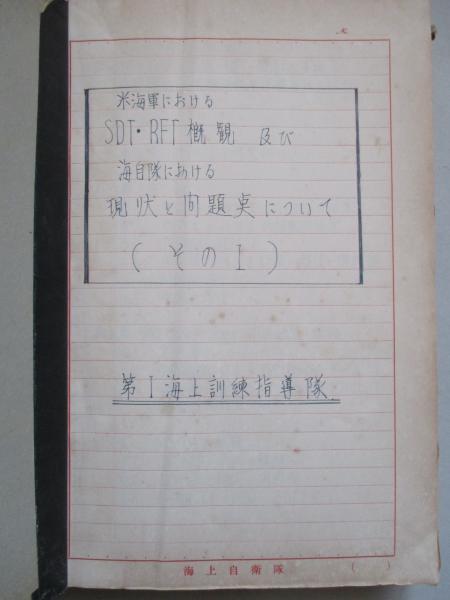 米海軍における
SDT・RFT概観 及び
海自隊における
現状と問題点について
(そのI)
第I海上訓練指導隊
海上自衛隊 ( )